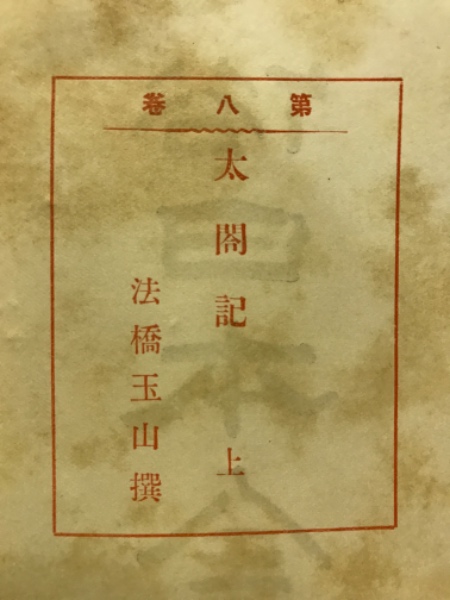 第八卷
太閤記 上
法橋玉山撰